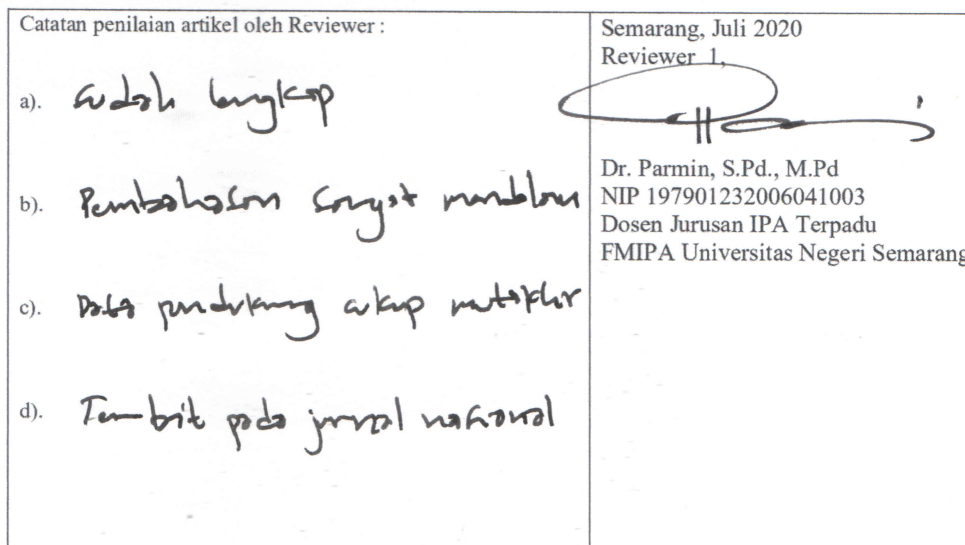 Catatan penilaian artikel oleh Reviewer :
a). Sudah lengkap
b). Pembahasan sangat mendalam
c). Data pendukung cukup mutakhir
d). Terbit pada jurnal nasional
Semarang, Juli 2020
Reviewer 1,
Dr. Parmin, S.Pd., M.Pd
NIP 197901232006041003
Dosen Jurusan IPA Terpadu
FMIPA Universitas Negeri Semarang